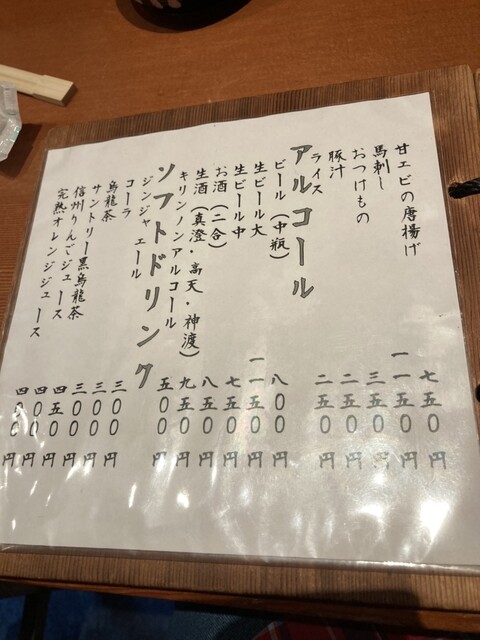 甘エビの唐揚げ 七五〇円
馬刺し 一一五〇円
おつけもの 三五〇円
豚汁 二五〇円
ライス 二五〇円
アルコール
ビール（中瓶） 八〇〇円
生ビール大 一一五〇円
生ビール中 七五〇円
お酒（二合） 八五〇円
生酒（真澄・高天・神渡） 九五〇円
キリンノンアルコール 五〇〇円
ソフトドリンク
ジンジャエール 三〇〇円
コーラ 三〇〇円
烏龍茶 三〇〇円
サントリー黒烏龍茶 四五〇円
信州りんごジュース 四〇〇円
完熟オレンジジュース 四〇〇円